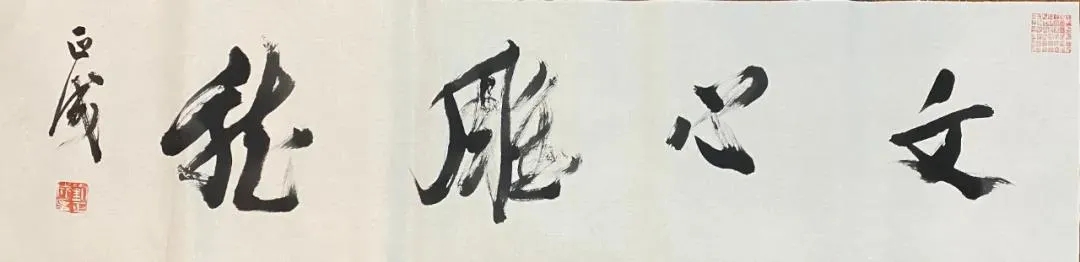 文心雕龍
正成